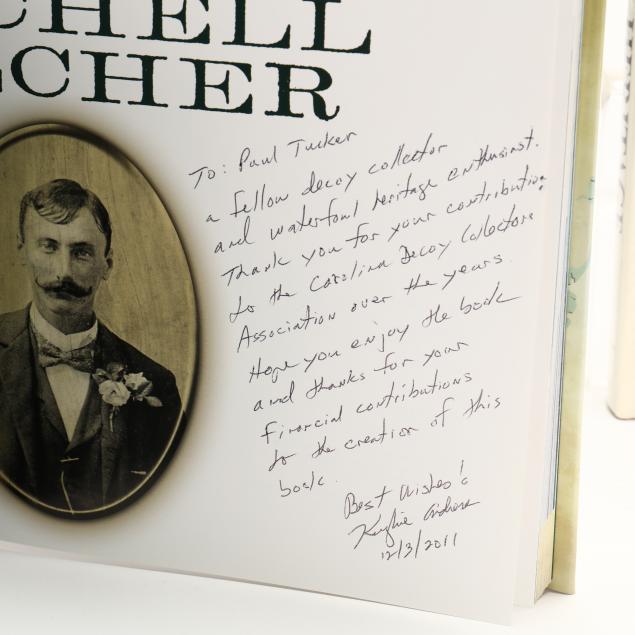 CHELL
LCHER
To: Paul Tucker
a fellow decoy collector
and waterfowl heritage enthusiast.
Thank you for your contributions
to the Carolina Decoy Collectors
Association over the years.
Hope you enjoy the book
and thanks for your
financial contributions
to the creation of this
book.
Best Wishes!
12/3/2011